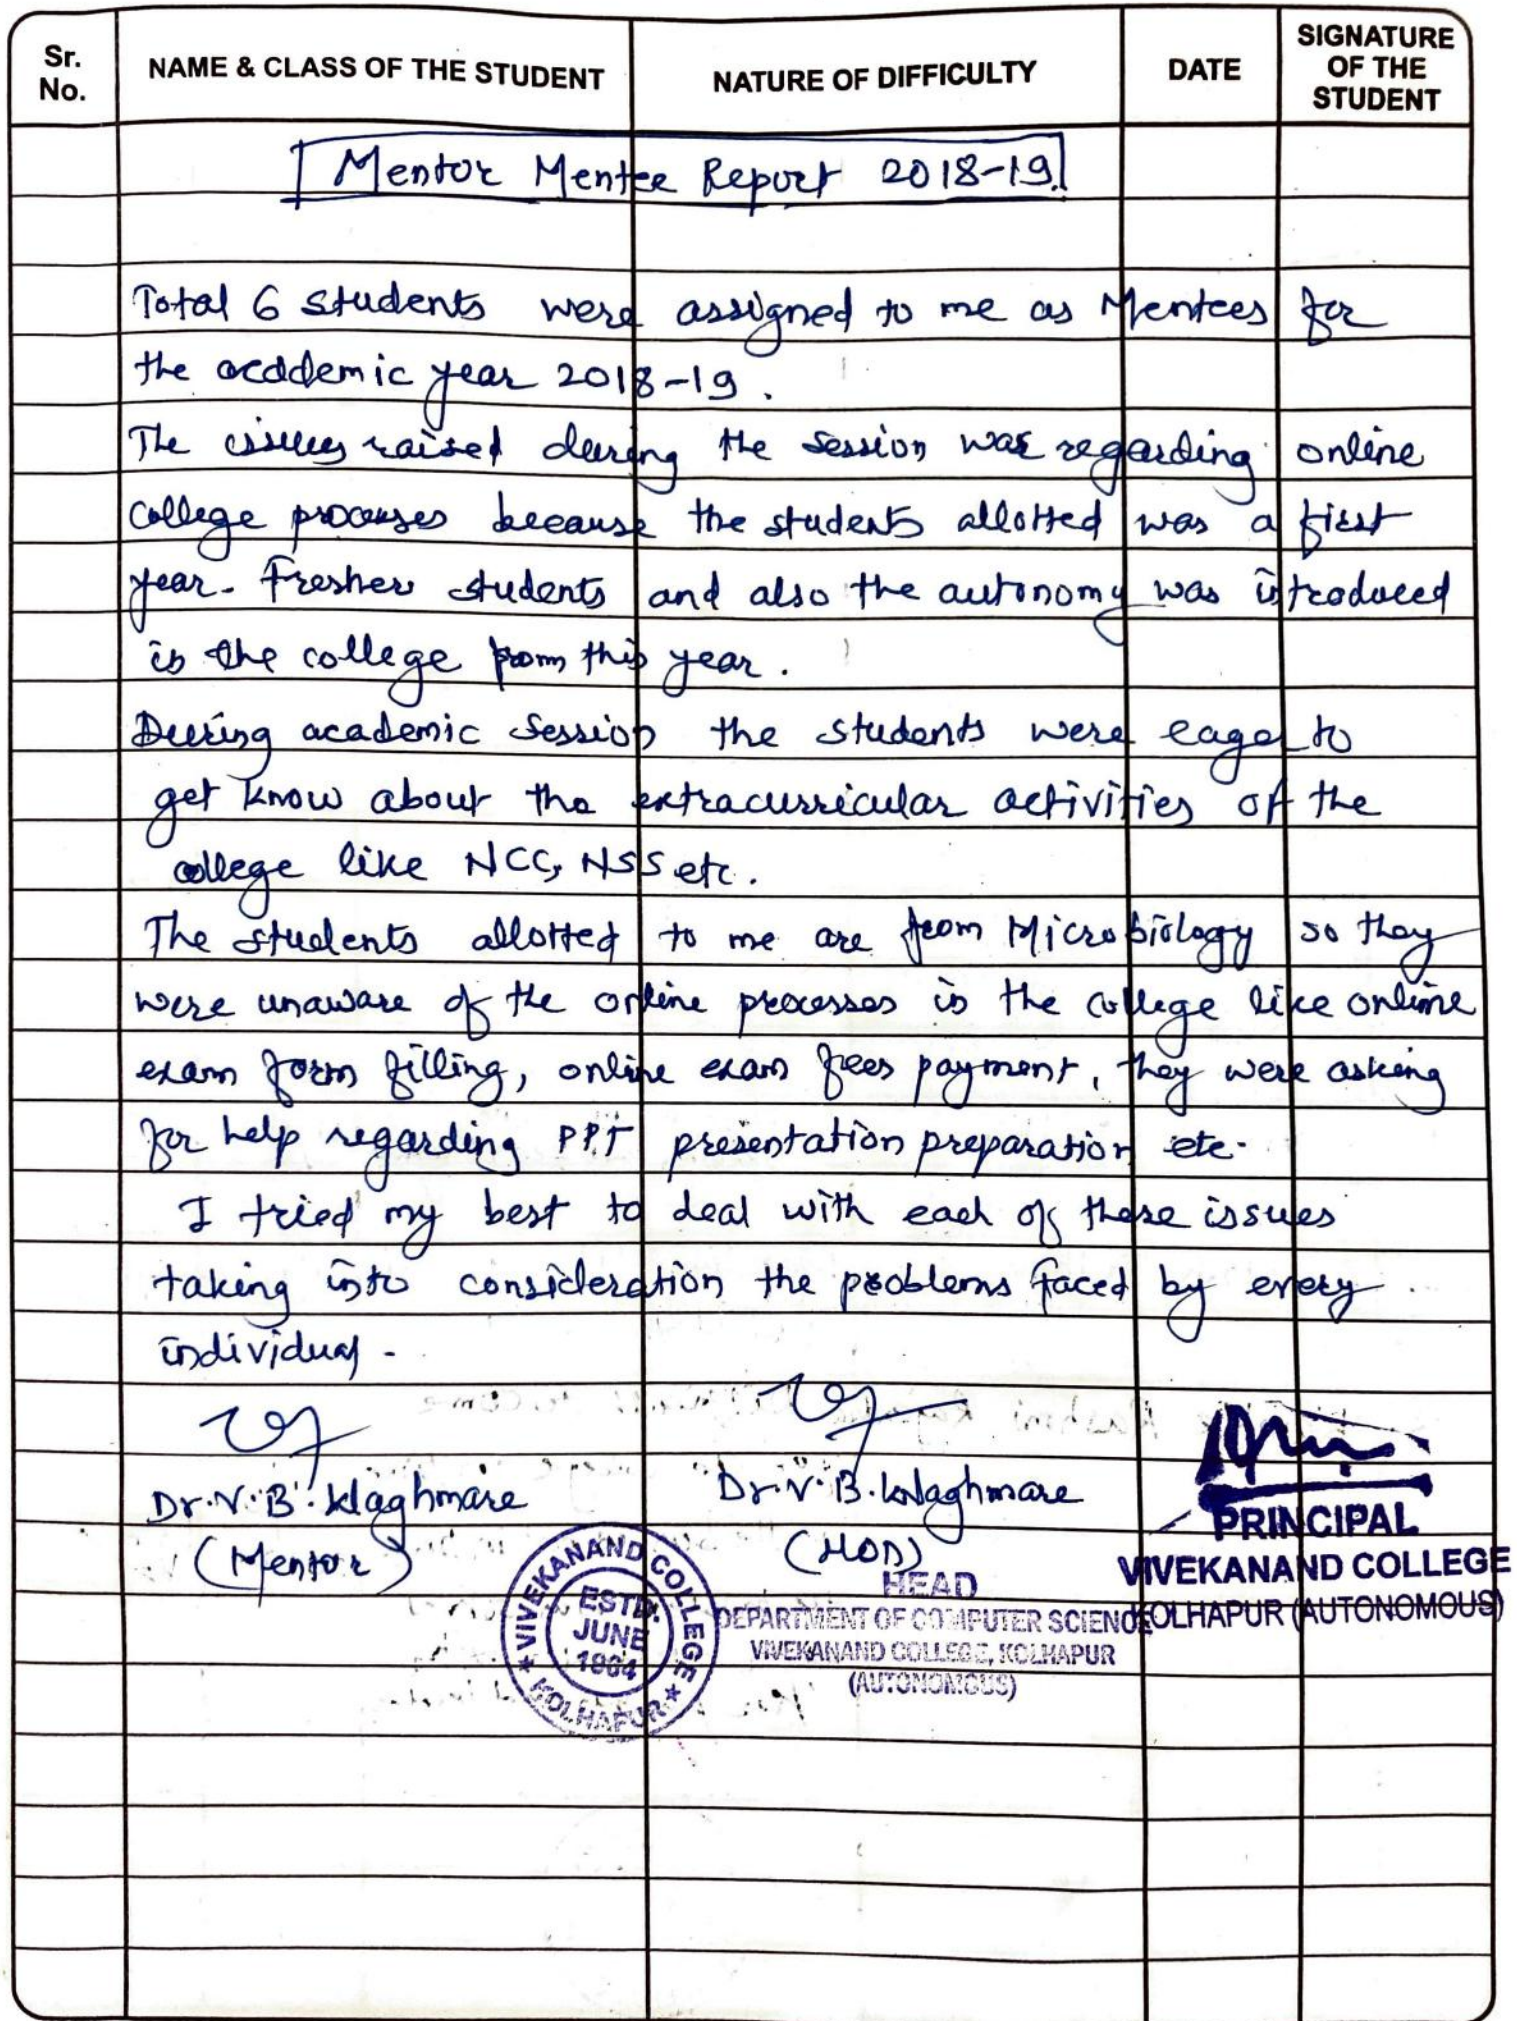 Sr. No.
NAME & CLASS OF THE STUDENT
NATURE OF DIFFICULTY
DATE
SIGNATURE OF THE STUDENT
Mentor Mentee Report 2018-19.
Total 6 students were assigned to me as Mentees for
the academic year 2018-19.
The issues raised during the session was regarding online
college processes because the students allotted was a first
year. Fresher students and also the autonomy was introduced
in the college from this year.
During academic session the students were eager to
get know about the extracurricular activities of the
college like NCC, NSS etc.
The students allotted to me are from Microbiology so they
were unaware of the online processes in the college like online
exam form filling, online exam fees payment, they were asking
for help regarding PPT presentation preparation etc.
I tried my best to deal with each of these issues
taking into consideration the problems faced by every
individual.
Dr. V. B. Waghmare
(Mentor)
Dr. V. B. Waghmare
(HOD)
HEAD
DEPARTMENT OF COMPUTER SCIENCE
VIVEKANAND COLLEGE, KOLHAPUR
(AUTONOMOUS)
PRINCIPAL
VIVEKANAND COLLEGE
KOLHAPUR (AUTONOMOUS)
VIVEKANAND COLLEGE
KOLHAPUR
ESTD.
JUNE
1964